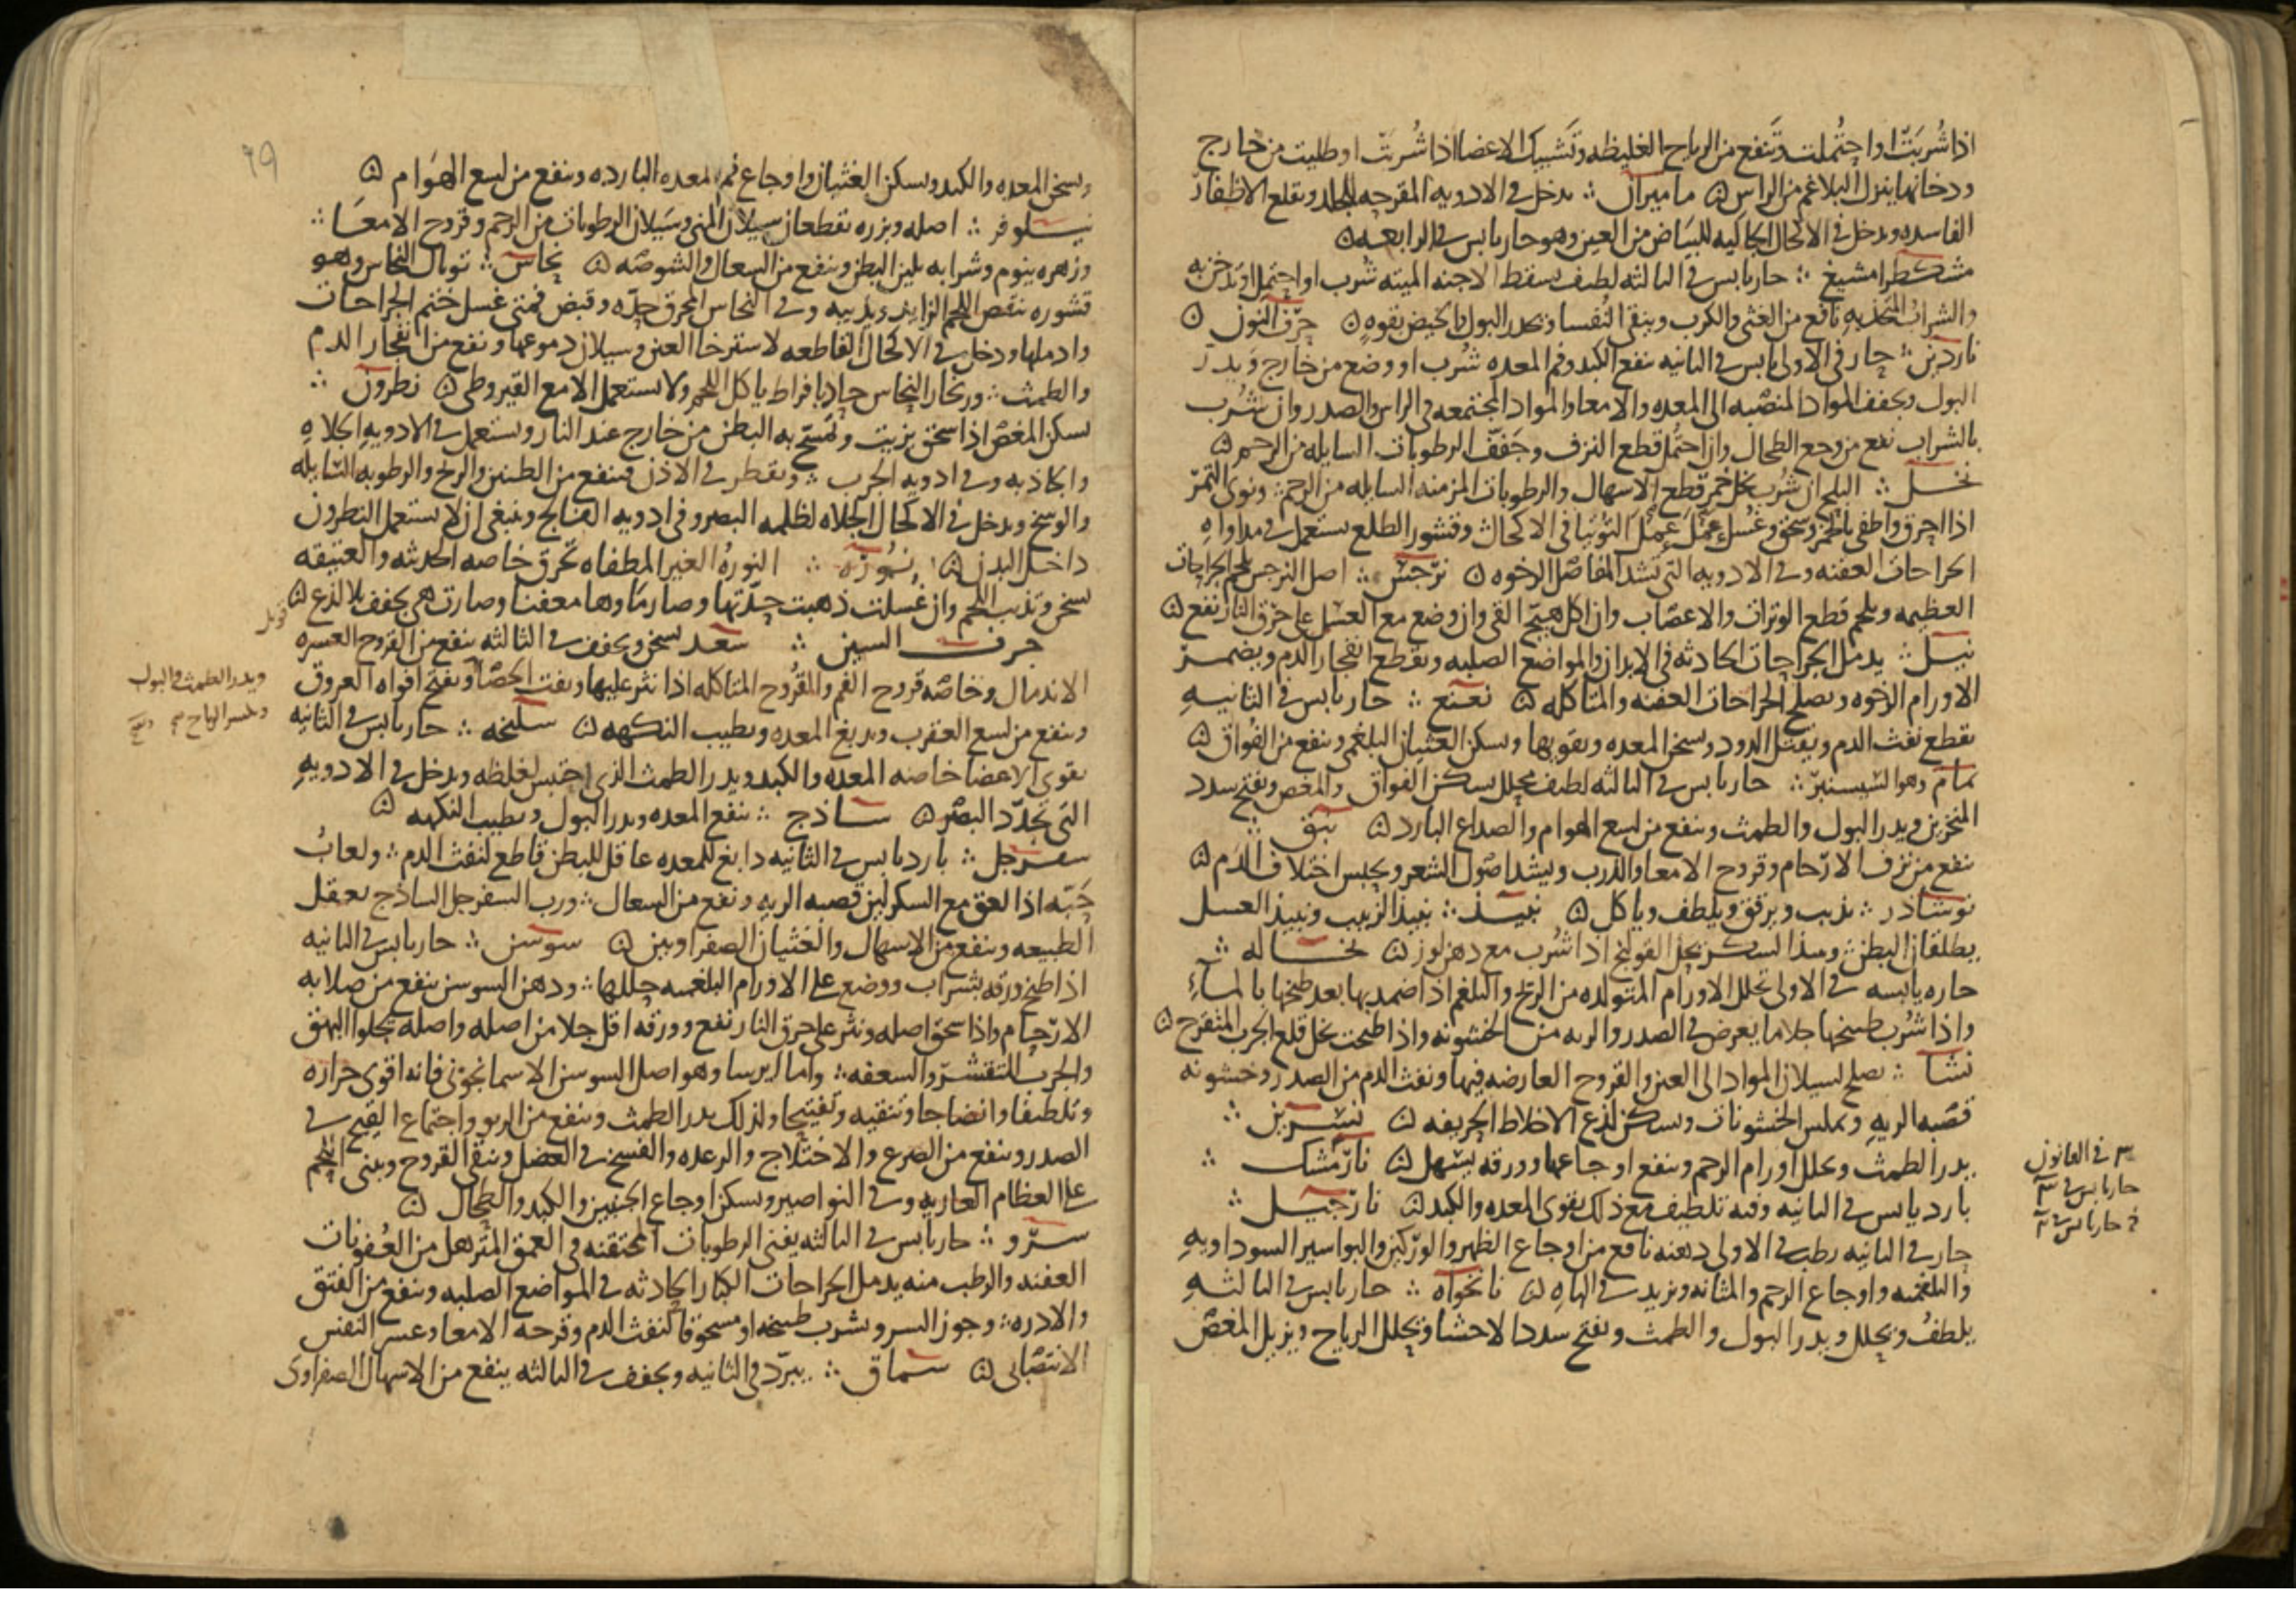 اذا شُربَتْ او احتُملت وتَنفع من الرياح الغليظه وتَشبيك الاعضا اذا شُربَت او طليت من خارج
ودخانها ينزل البلاغم من الراس ۞ ماميران ∴ يدخل في الادويه المقرحه للجلد ويقلع الاظفار
الفاسده ويدخل في الاكحال الجاليه للبياض من العين وهو حار يابس في الرابعه ۞
مشكطرامشيغ ∴ حار يابس في الثالثه لطيف يسقط الاجنه الميته شُرب او احتمل او تدخن به
والشراب المتخذ به نافع من الغثى والكرب وينقى النُفسا ويحدر البول والحيض بقوه ۞ حرف النون ۞
ناردين ∴ حار في الاولى يابس في الثانيه ينفع الكبد وفم المعده شُرب او وضع من خارج ويدر
البول ويجفف المواد المنصبه الى المعده والامعا والمواد المجتمعه في الراس والصدر وان شُرب
بالشراب نفع من وجع الطحال وان احتُمل قطع النزف وجَفف الرطوبات السايله من الرحم ۞
نخل ∴ البلح ان شُرب بخل خمر قطع الاسهال والرطوبات المزمنه السايله من الرحم ∴ ونوى التمر
اذا احرق واطفى بالخمر وسحق وغُسل عمل عمل التوتيا في الاكحال وقشور الطلع يستعمل في مداواه
الجراحات العفنه وفي الادويه التي تشد المفاصل الرخوه ۞ نرجس ∴ اصل النرجس يلحم الجراحات
العظيمه ويلحم قطع الوترات والاعصاب وان اكل هيّج القى وان وضع مع العسل على حرق النار نفع ۞
نيل ∴ يدمل الجراحات الحادثه في الابدان والمواضع الصلبه ويقطع انفجار الدم ويضمر
الاورام الرخوه ويصلح الجراحات العفنه والمتاكله ۞ نعنع ∴ حار يابس في الثانيه
يقطع نفث الدم ويقتل الدود ويسخن المعده ويقويها ويسكن الغثيان البلغمى وينفع من الفُواق ۞
نمام وهو السيسنبر ∴ حار يابس في الثالثه لطيف محلل يسكن الفواق والمغص ويفتح سدد
المنخرين ويدر البول والطمث وينفع من لسع الهوام والصداع البارد ۞ نبق ∴
ينفع من نزف الارحام وقروح الامعا والذرب ويشد اصول الشعر ويحبس اختلاف الدم ۞
نوشادر ∴ يذيب ويرقق ويلطف وياكل ۞ نبيذ ∴ نبيذ الزبيب ونبيذ العسل
يطلقان البطن ∴ ونبيذ السكر يحل القولنج اذا شُرب مع دهن لوز ۞ نخاله ∴
حاره يابسه في الاولى تحلل الاورام المتولده من الريح والبلغم اذا ضمد بها بعد طبخها بالماء
واذا شُرب طبيخها جلا ما يعرض في الصدر والريه من الخشونه واذا طبخت بخل قلع الجرب المتقرح ۞
نشا ∴ يصلح لسيلان المواد الى العين والقروح العارضه فيها ونفث الدم من الصدر وخشونه
قصبه الريه ويملس الخشونات ويسكن لذع الاخلاط الحريفه ۞ نسرين ∴
يدر الطمث ويحلل اورام الرحم وينفع اوجاعها وورقه يسهل ۞ نارمشك ∴
بارد يابس في الثانيه وفيه تلطيف مع ذلك يقوى المعده والكبد ۞ نارجيل ∴
حار في الثانيه رطب في الاولى دهنه نافع من اوجاع الظهر والوركين والبواسير السوداويه
والبلغميه واوجاع الرحم والمثانه ويزيد في الباه ۞ نانخواه ∴ حار يابس في الثالثه
يلطف ويحلل ويدر البول والطمث ويفتح سدد الاحشا ويحلل الرياح ويزيل المغص
في القانون
حار يابس في ٣
حار يابس في ٢
٩٩
ويسخن المعده والكبد ويسكن الغثيان واوجاع فم المعده البارده وينفع من لسع الهوام ۞
نيلوفر ∴ اصله وبزره يقطعان سيلان المنى وسَيلان الرطوبات من الرحم وقروح الامعَا ∴
وزهره ينوم وشرابه يلين البطن وينفع من السعال والشوصه ۞ نحاس ∴ توبال النحاس وهو
قشوره ينقص اللحم الزايد ويذيبه وفي النحاس المحرق حدّه وقبض فمتى غسل ختم الجراحات
وادملها ودخل في الاكحال القاطعه لاسترخا العين وسيلان دموعها ونفع من انفجار الدم
والطمث ∴ وزنجار النحاس حاد بافراط ياكل اللحم ولا يستعمل الا مع القيروطى ۞ نطرون ∴
يسكن المغص اذا سحق بزيت وتمسّح به البطن من خارج عند النار ويستعمل في الادويه الجلاه
والجاذبه وفي ادويه الجرب ∴ ويقطر في الاذن فينفع من الطنين والريح والرطوبه السايله
والوسخ ويدخل في الاكحال الجلاه لظلمه البصر وفي ادويه الفالج وينبغى ان لا يستعمل النطرون
داخل البدن ۞ نُورَه ∴ النورهُ الغير المطفاه تحرق خاصه الحديثه والعتيقه
تسخن وتذيب اللحم وان غُسلت ذهبت حدّتها وصار مآوها معفنا وصارت هي تجفف بلا لذع ۞
حرف السين ∴ سعد يسخن ويجفف في الثالثه ينفع من القروح العسره
الاندمال وخاصه قروح الفم والقروح المتاكله اذا نثر عليها ويفت الحصا ويفتح افواه العروق
وينفع من لسع العقرب ويدبغ المعده ويطيب النكهه ۞ سليخه ∴ حار يابس في الثانيه
يقوى الاعضا خاصه المعده والكبد ويدر الطمث الذى احتبس لغلظه ويدخل في الادويه
التى تحدّ البصر ۞ ساذج ∴ ينفع المعده ويدر البول ويطيب النكهه ۞
سفرجل ∴ بارد يابس في الثانيه دابغ للمعده عاقل للبطن قاطع لنفث الدم ∴ ولعابُ
حَبّه اذا لعق مع السكر لين قصبه الريه ونفع من السعال ∴ ورب السفرجل الساذج يعقل
الطبيعه وينفع من الاسهال والغثيان الصفراويين ۞ سوسن ∴ حار يابس في الثانيه
اذا طبخ ورقه بشراب ووضع على الاورام البلغميه حللها ∴ ودهن السوسن ينفع من صلابه
الارحام واذا سحق اصله ونثر على حرق النار نفع وورقه اقل جلا من اصله واصله يجلوا البهق
والجرب المتقشر والسعفه ∴ واما ايرسا وهو اصل السوسن الاسمانجونى فانه اقوى حراره
وتلطيفا وانضاجا وتنقيه وتفتيحا ولذلك يدر الطمث وينفع من الربو واجتماع القيح في
الصدر وينفع من الصرع والاختلاج والرعده والفسخ في العضل وينقى القروح ويبنى اللحم
على العظام العاريه وفي النواصير ويسكن اوجاع الجنبين والكبد والطحال ۞
سرو ∴ حار يابس في الثالثه يفنى الرطوبات المحتقنه في العمق المترهل من العُفونات
العفنه والرطب منه يدمل الجراحات الكبار الحادثه في المواضع الصلبه وينفع من الفتق
والادره ∴ وجوز السرو يشرب طبيخه او مسحوقا لنفث الدم وقرحه الامعا وعسر النفس
الانتصابى ۞ سماق ∴ يبرّد في الثانيه ويجفف في الثالثه ينفع من الاسهال الصفراوى
قوبل
ويدر الطمث والبول
ويكسر الرياح صح